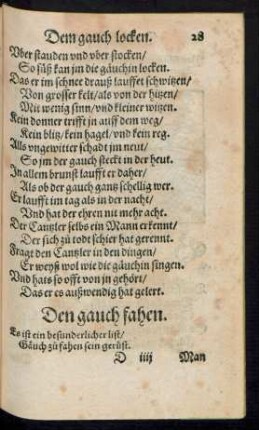 Dem gauch locken. 28
Vber stauden vnd vber stocken/
So süß kan jm die gäuchin locken.
Das er im schnee drauß lauffet schwitzen/
Von grosser kelt/als von der hitzen/
Mit wenig sinn/vnd kleiner witzen.
Kein donner trifft jn auff dem weg/
Kein blitz/kein hagel/vnd kein reg.
Alls vngewitter schadt jm neut/
So jm der gauch steckt in der heut.
In allem brunst laufft er daher/
Als ob der gauch gantz schellig wer.
Er laufft im tag als in der nacht/
Vnd hat der ehren nit mehr acht.
Der Cantzler selbs ein Mann erkennt/
Der sich zů todt schier hat gerennt.
Fragt den Cantzler in den dingen/
Er weyßt wol wie die gäuchin singen.
Vnd hats so offt von jn gehört/
Das er es außwendig hat gelert.
Den gauch fahen.
Es ist ein besunderlicher list/
Gäuch zů fahen sein gerüst.
D iiij Man